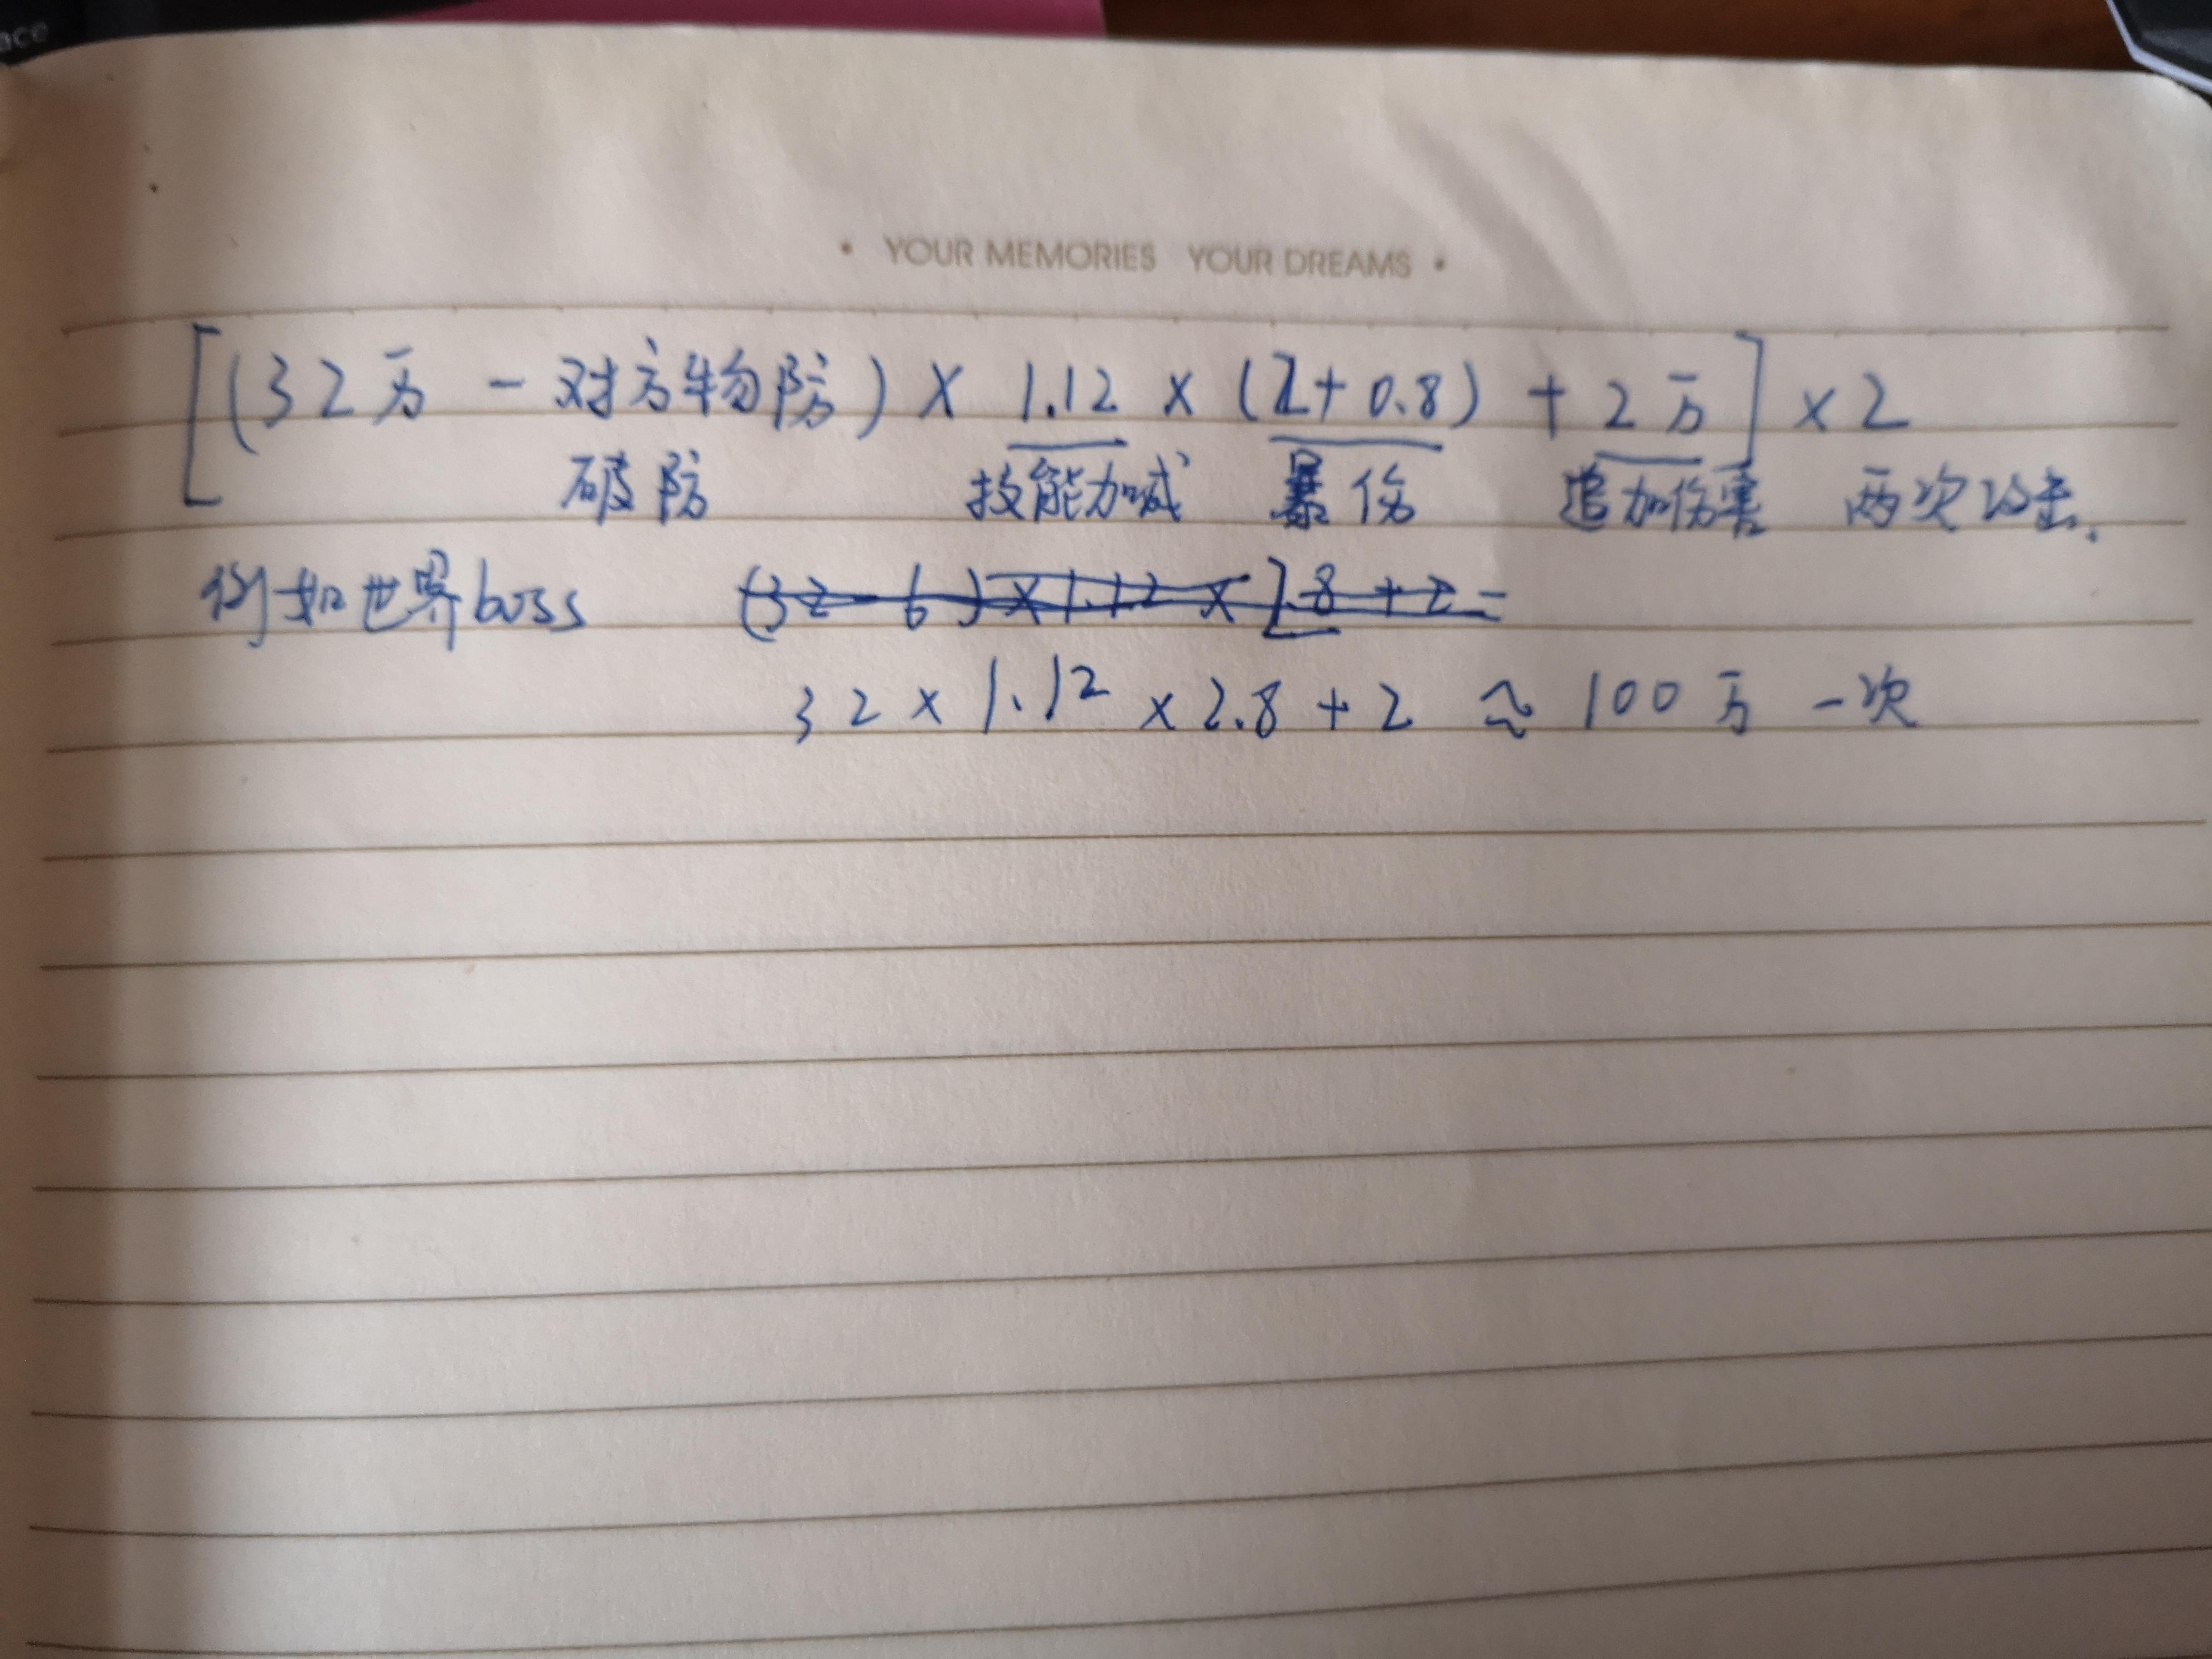 ace
• YOUR MEMORIES YOUR DREAMS •
[(32万 - 对方物防) × 1.12 × (2+0.8) + 2万] × 2
破防 技能加成 暴伤 追加伤害 两次攻击.
例如世界boss (32-6)×1.12×2.8+2=
32 × 1.12 × 2.8 + 2 ≈ 100万 一次